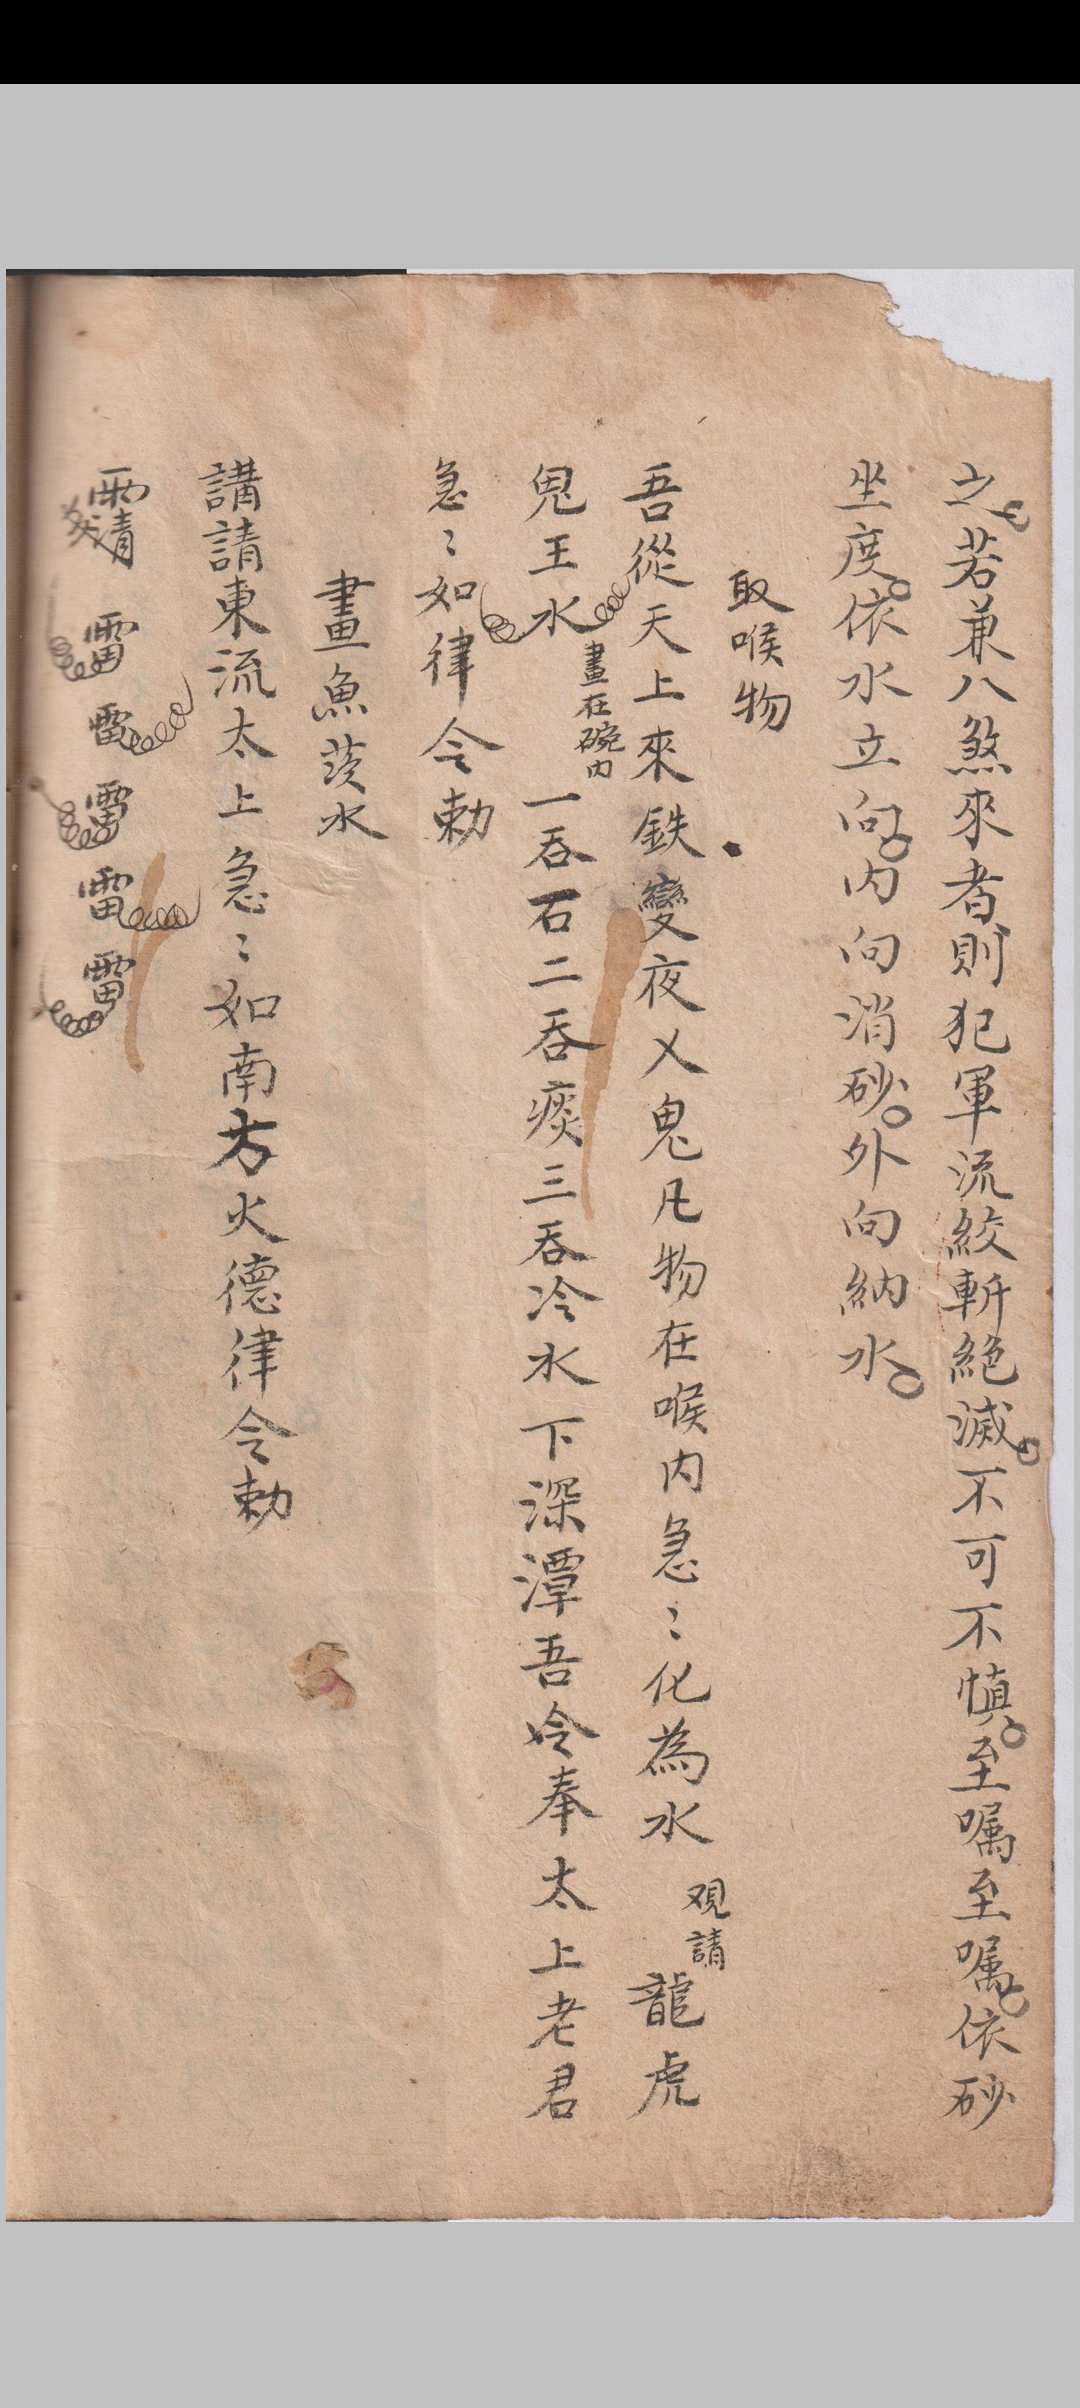 之若兼八煞來者則犯軍流絞斬絕滅不可不慎至嘱至嘱依砂
坐度依水立向内向消砂外向納水
取喉物
吾從天上來鉄變夜乂鬼凡物在喉内急〻化為水 观請 龍虎
鬼王水 畫在碗内 一吞石二吞痰三吞冷水下深潭吾令奉太上老君
急〻如律令勅
畫魚茨水
講請東流太上急〻如南方火德律令勅
雷雷雷雷雷